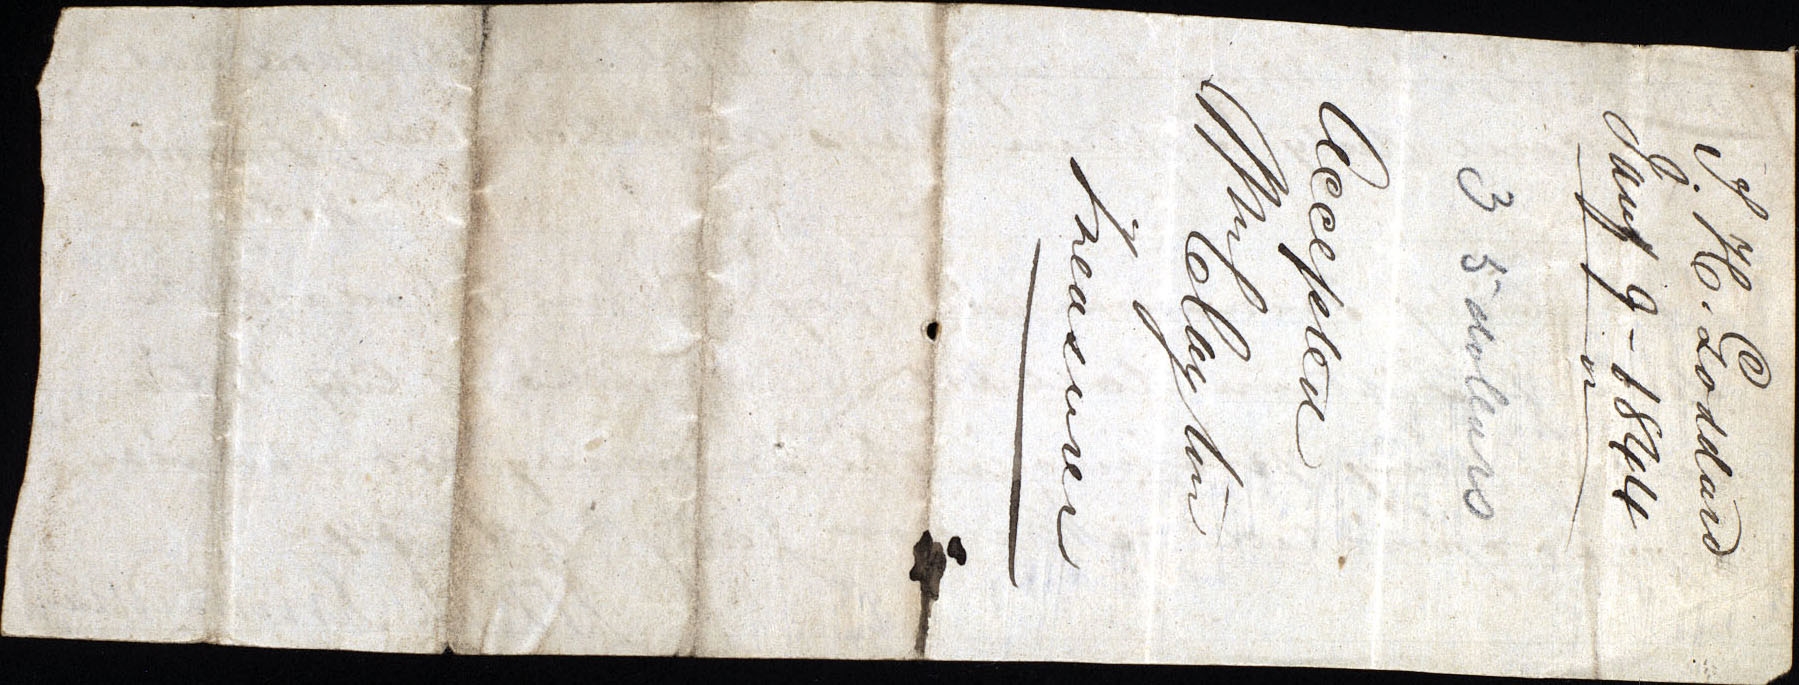 S. H. Goddard
Jany 9 - 1844
35 dollars
Accepted
Wm Clayton
Treasurer